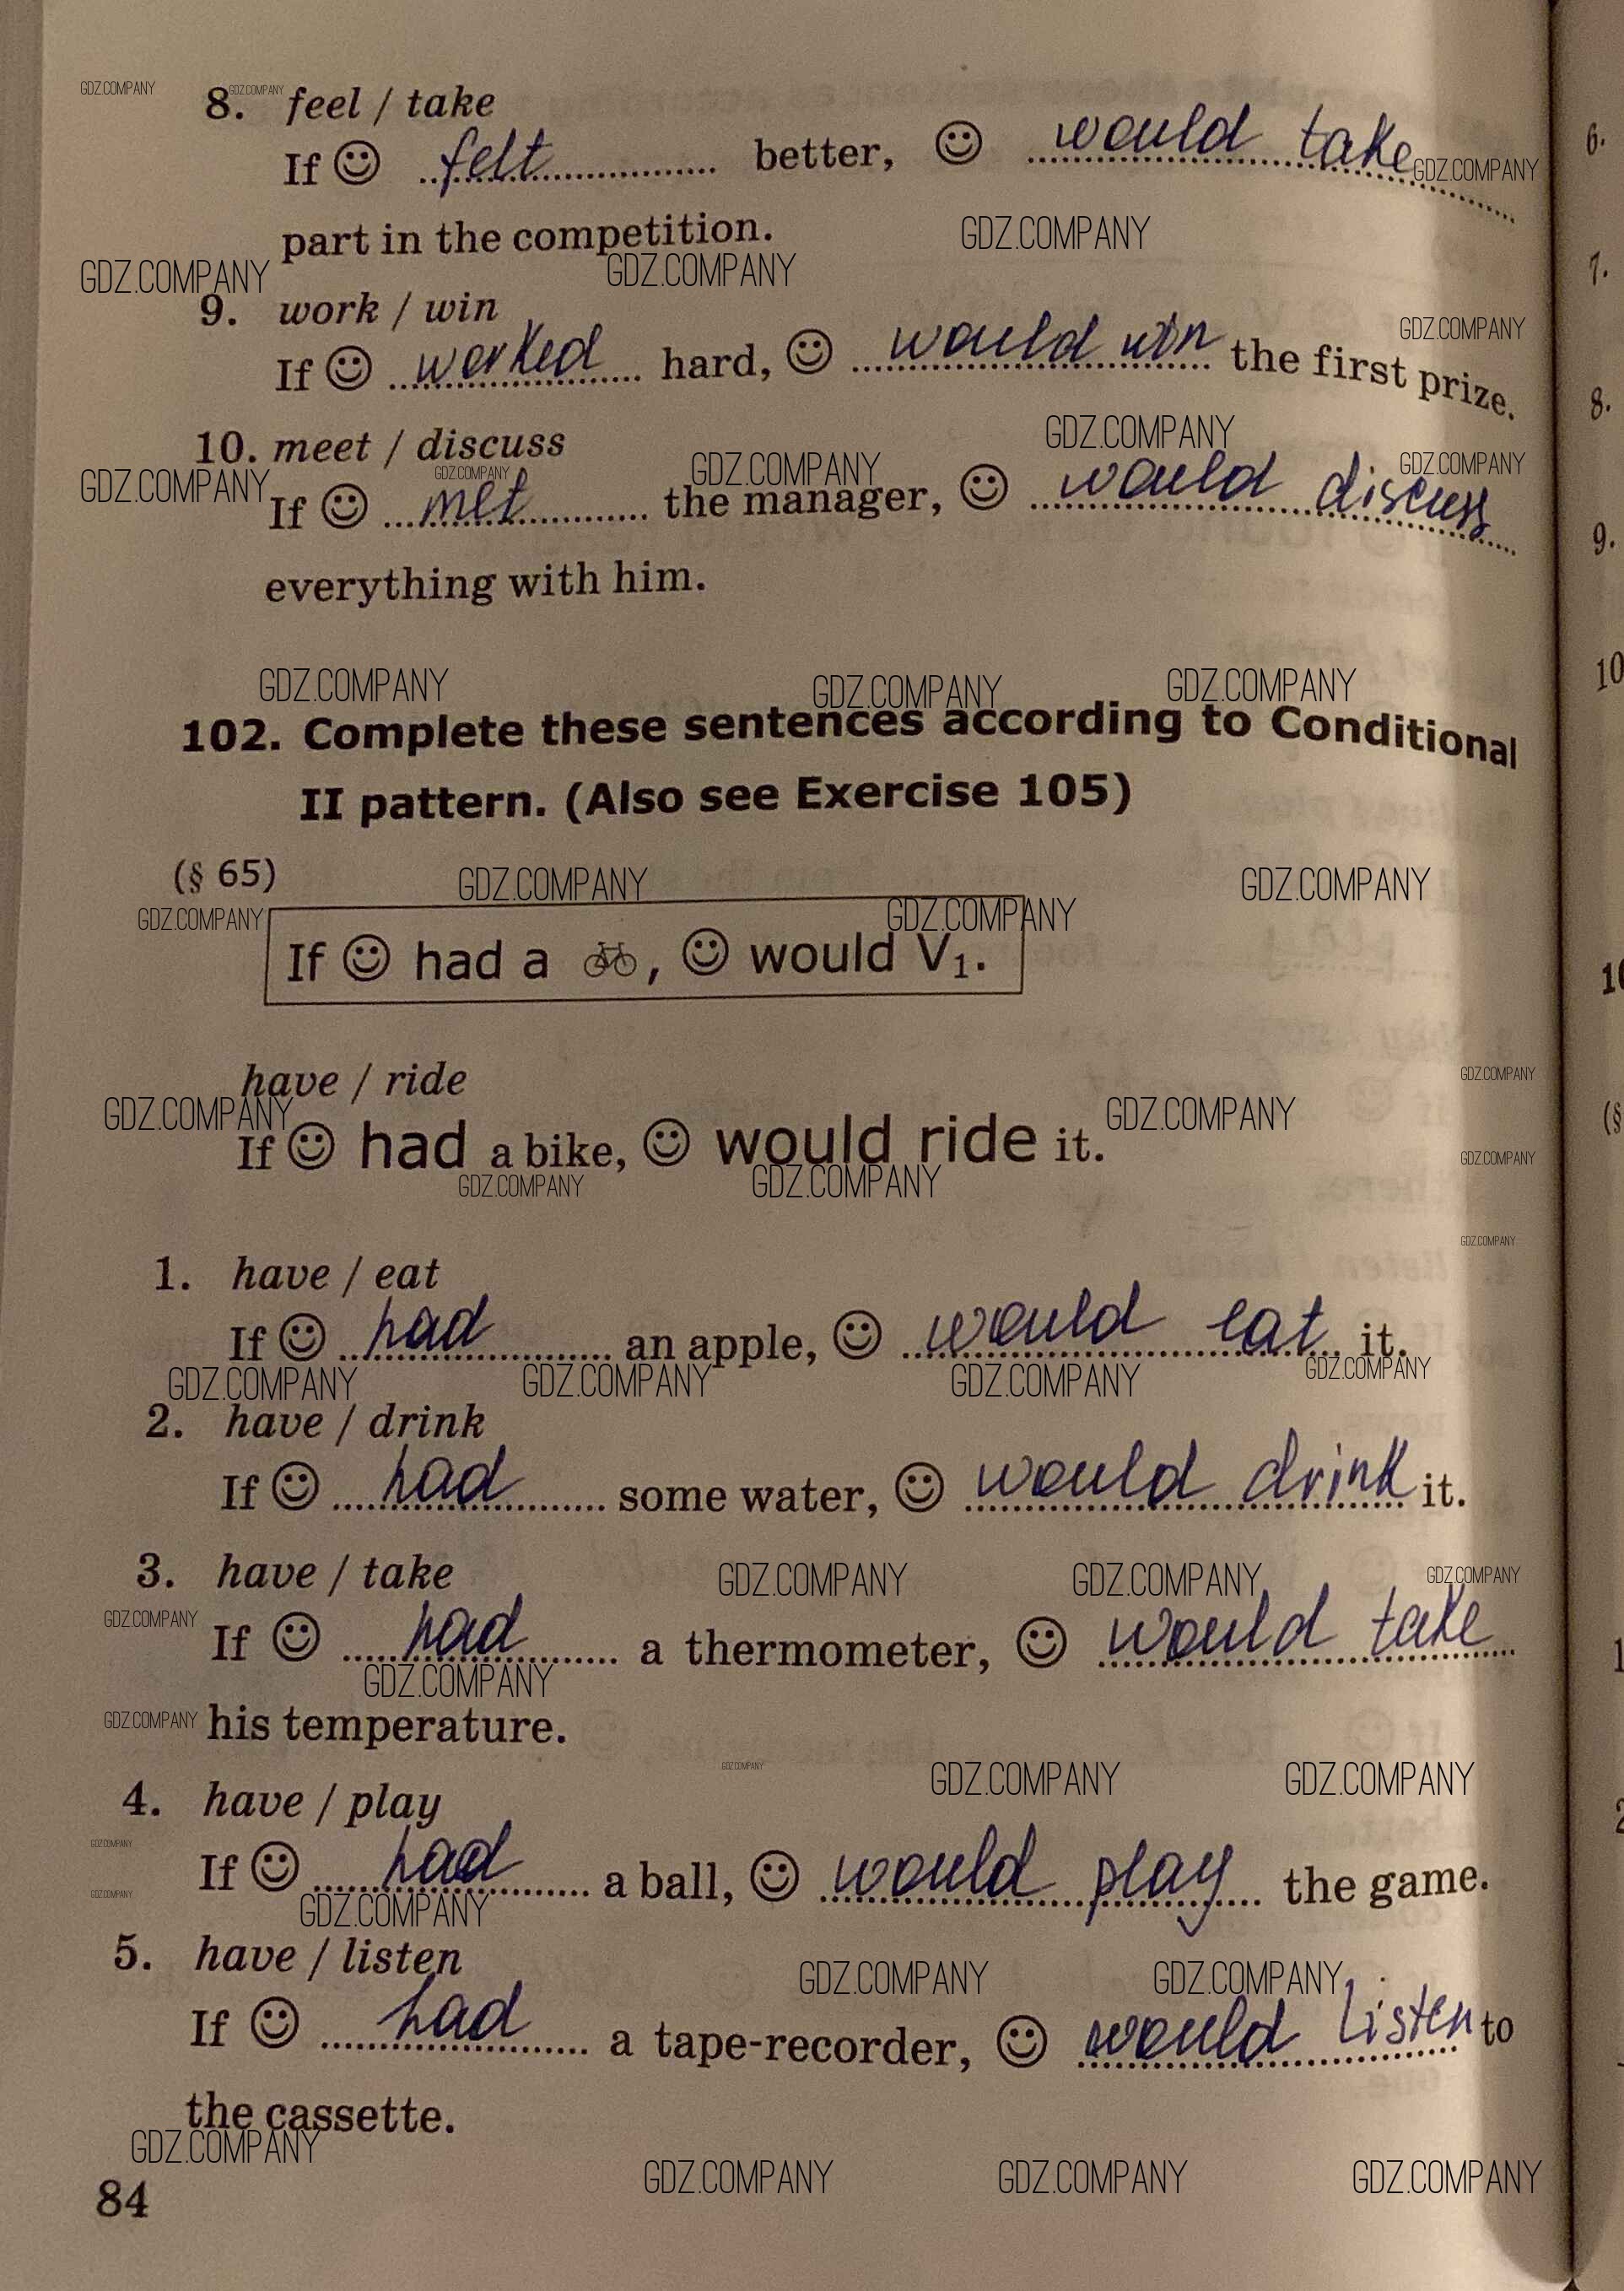 8. feel / take
If ☺ felt better, ☺ would take
part in the competition.
9. work / win
If ☺ worked hard, ☺ would win the first prize.
10. meet / discuss
If ☺ met the manager, ☺ would discuss
everything with him.
102. Complete these sentences according to Conditional
II pattern. (Also see Exercise 105)
(§ 65)
If ☺ had a 🚲, ☺ would V₁.
have / ride
If ☺ had a bike, ☺ would ride it.
1. have / eat
If ☺ had an apple, ☺ would eat it.
2. have / drink
If ☺ had some water, ☺ would drink it.
3. have / take
If ☺ had a thermometer, ☺ would take
his temperature.
4. have / play
If ☺ had a ball, ☺ would play the game.
5. have / listen
If ☺ had a tape-recorder, ☺ would listen to
the cassette.
84
GDZ.COMPANY